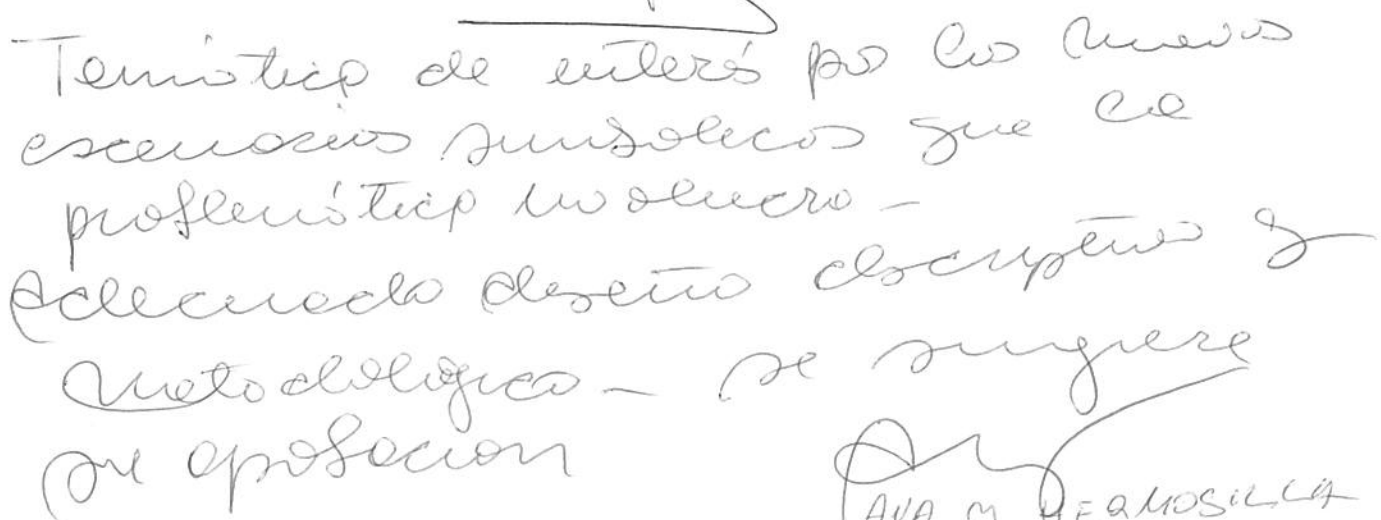 Temática de interés por los nuevos
escenarios simbólicos que la
problemática involucra -
Adecuado diseño descriptivo y
metodológico - se sugiere
su aprobación
ANA M. HERMOSILLA